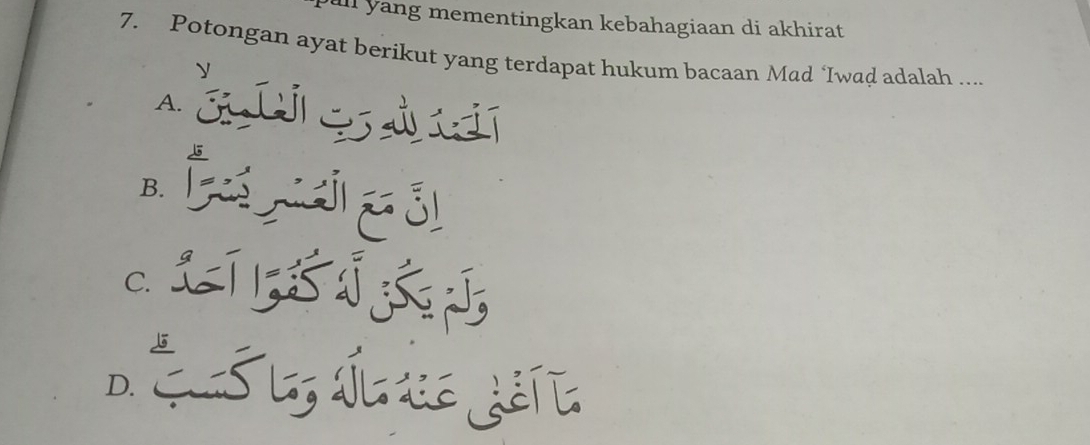 yang mementingkan kebahagiaan di akhirat
7. Potongan ayat berikut yang terdapat hukum bacaan Mad ‘Iwaḍ adalah ....
A. اَلْحَمْدُ لِلّٰهِ رَبِّ الْعٰلَمِيْنَۙ
B. اِنَّ مَعَ الْعُسْرِ يُسْرًاۗ
C. وَلَمْ يَكُنْ لَّهٗ كُفُوًا اَحَدٌ
D. مَآ اَغْنٰى عَنْهُ مَالُهٗ وَمَا كَسَبَۗ